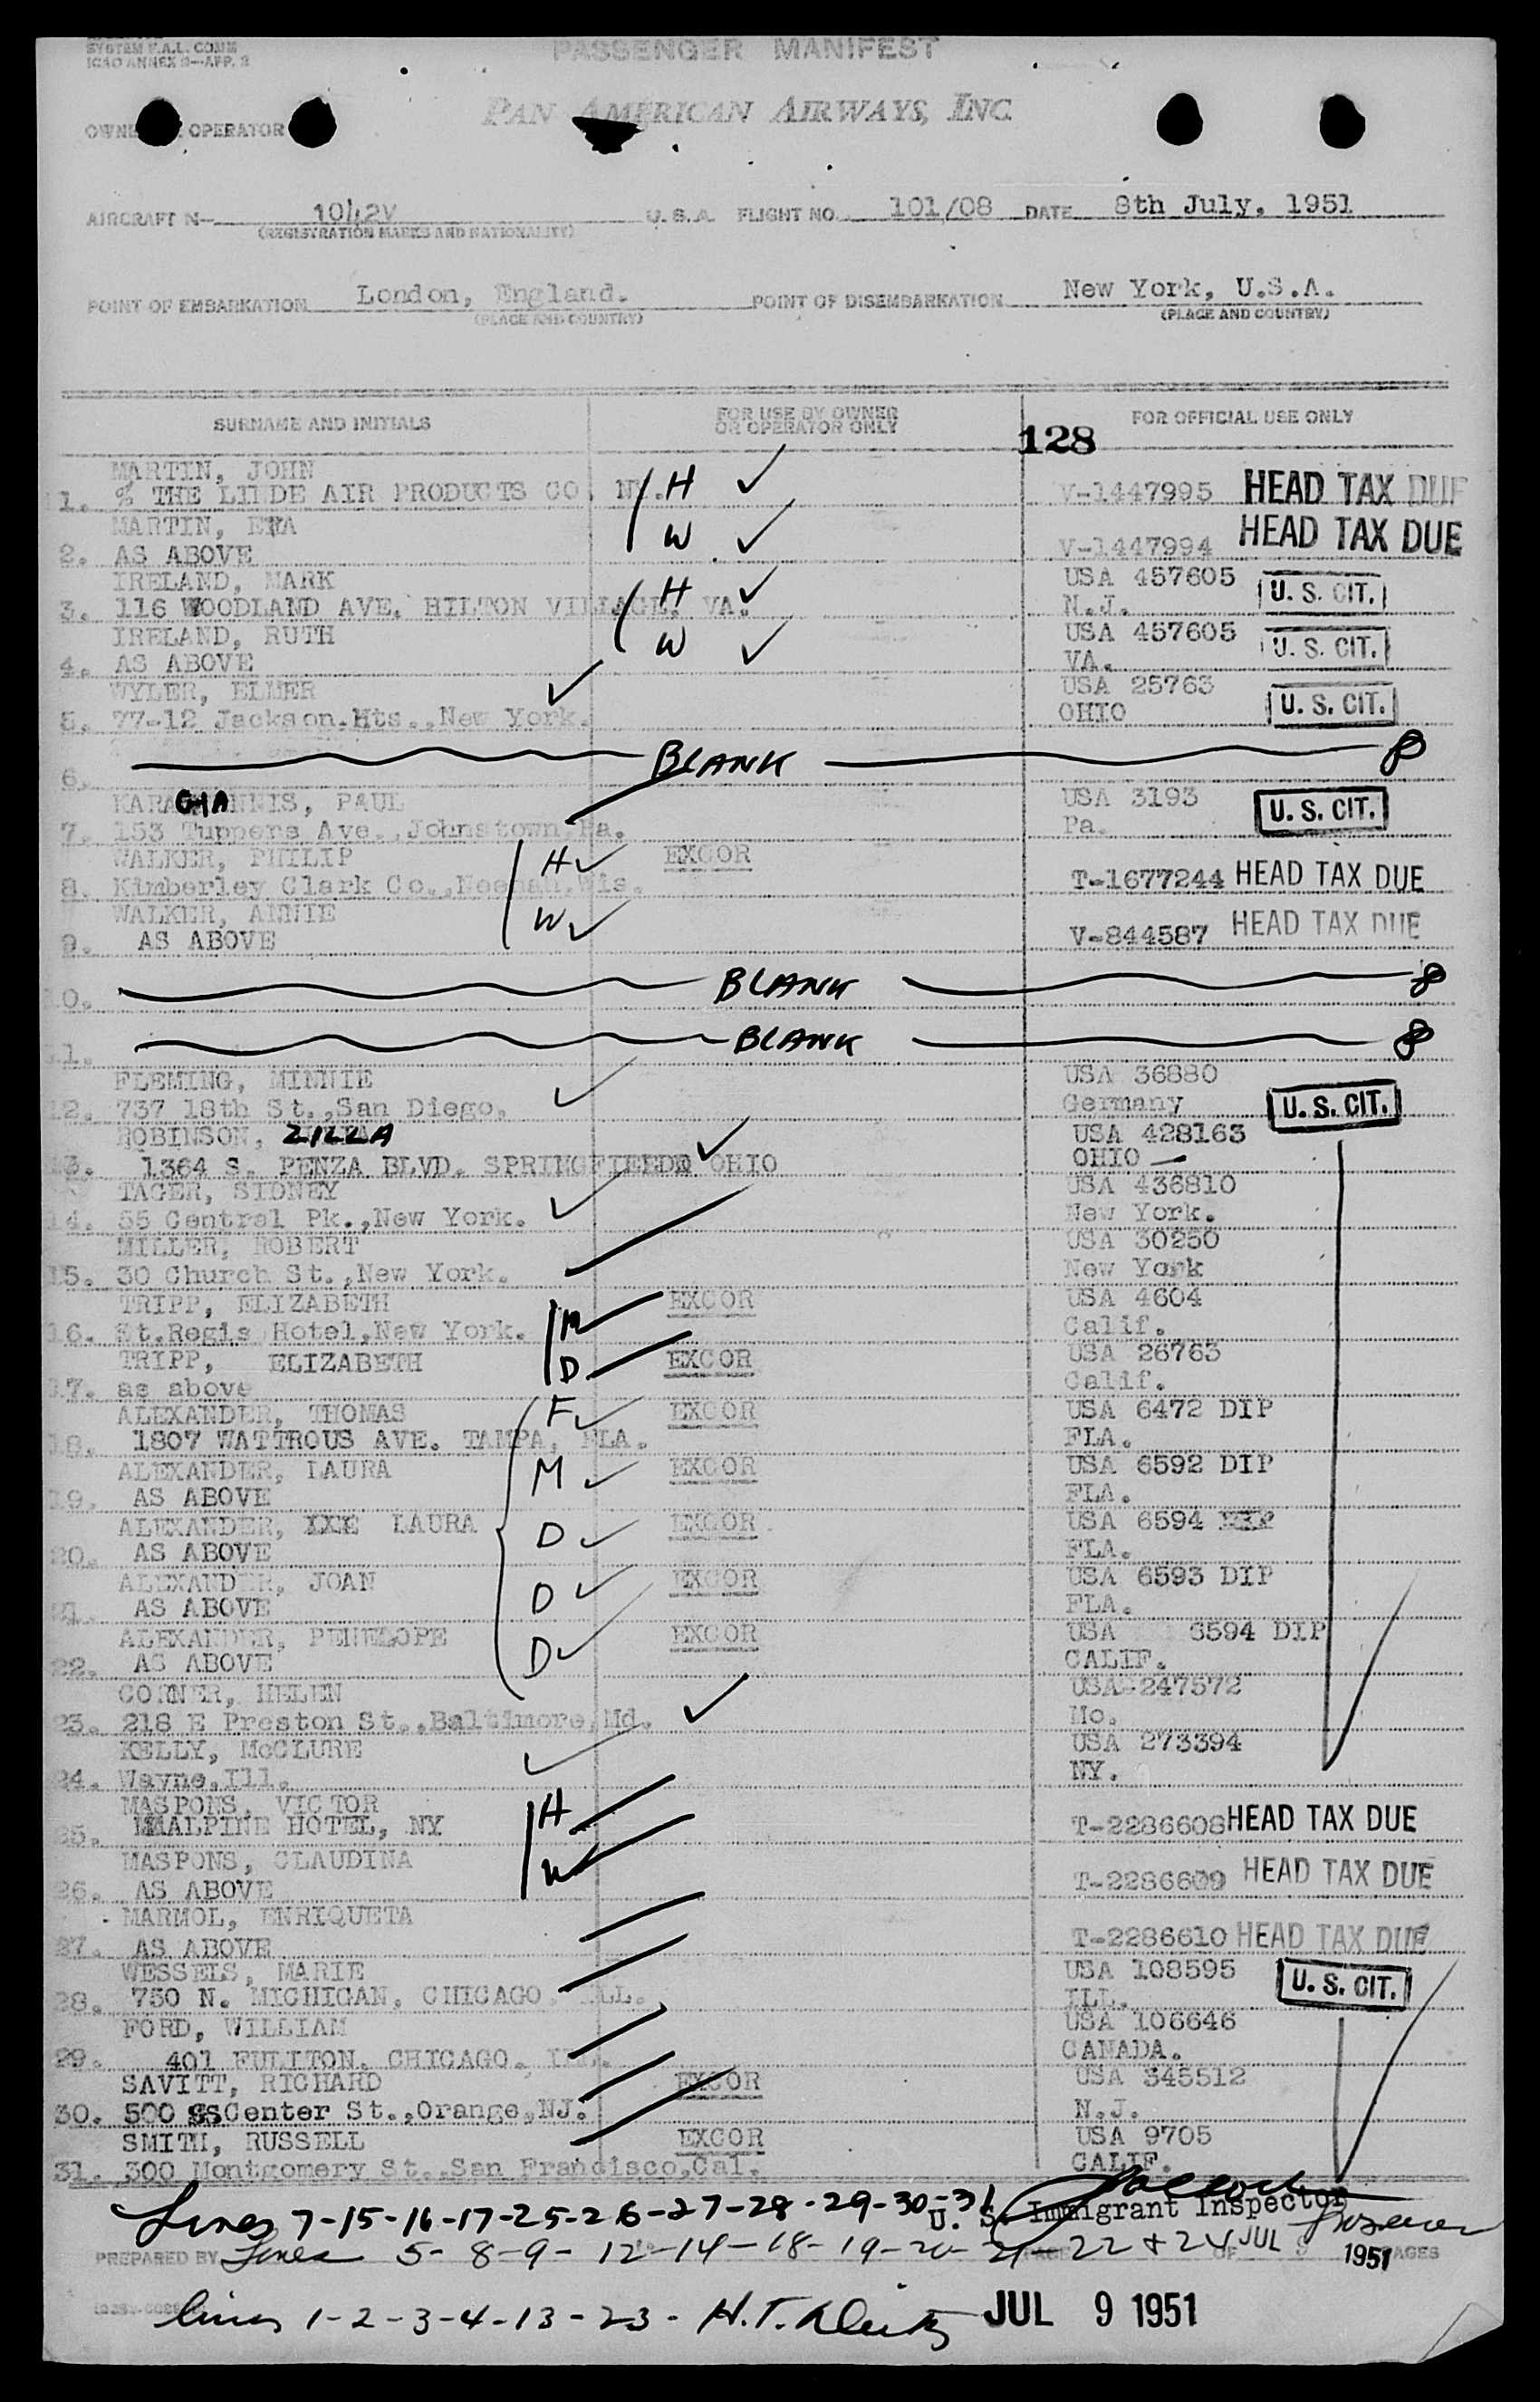 SYSTEM F.A.L. COMM
ICAO ANNEX 9—APP. 3
PASSENGER MANIFEST
PAN AMERICAN AIRWAYS, INC.
OPERATOR
AIRCRAFT N— 1042V U.S.A. FLIGHT NO. 101/08 DATE 8th July, 1951
(REGISTRATION MARKS AND NATIONALITY)
POINT OF EMBARKATION London, England. POINT OF DISEMBARKATION New York, U.S.A.
(PLACE AND COUNTRY) (PLACE AND COUNTRY)
SURNAME AND INITIALS FOR USE BY OWNER OR OPERATOR ONLY FOR OFFICIAL USE ONLY
128
MARTIN, JOHN
1. % THE LINDE AIR PRODUCTS CO. NY. H V-1447995 HEAD TAX DUE
MARTIN,
2. AS ABOVE W V-1447994 HEAD TAX DUE
IRELAND, MARK USA 457605
3. 116 WOODLAND AVE. HILTON VILLAGE, VA. H N.J. U. S. CIT.
IRELAND, RUTH USA 457605
4. AS ABOVE W VA. U. S. CIT.
WYLER, ELMER USA 25763
5. 77-12 Jackson.Hts.,New York. OHIO U. S. CIT.
6. BLANK
KARAGIANNIS, PAUL USA 3193
7. 153 Tuppens Ave.,Johnstown,Pa. Pa. U. S. CIT.
WALKER, PHILIP H EXCOR
8. Kimberley Clark Co.,Neenah,Wis. T-1677244 HEAD TAX DUE
WALKER, ANNIE W
9. AS ABOVE V-844587 HEAD TAX DUE
10. BLANK
11. BLANK
FLEMING, MINNIE USA 36880
12. 737 18th St.,San Diego. Germany U. S. CIT.
ROBINSON, ZILLA USA 428163
13. 1364 S. PENZA BLVD. SPRINGFIELD OHIO OHIO
TAGER, SIDNEY USA 436810
14. 55 Central Pk.,New York. New York.
MILLER, ROBERT USA 30250
15. 30 Church St.,New York. New York
TRIPP, ELIZABETH EXCOR USA 4604
16. St.Regis Hotel,New York. M Calif.
TRIPP, ELIZABETH D EXCOR USA 26763
17. as above Calif.
ALEXANDER, THOMAS F EXCOR USA 6472 DIP
18. 1807 WATTROUS AVE. TAMPA, FLA. FLA.
ALEXANDER, LAURA M EXCOR USA 6592 DIP
19. AS ABOVE FLA.
ALEXANDER, LAURA D EXCOR USA 6594 DIP
20. AS ABOVE FLA.
ALEXANDER, JOAN D EXCOR USA 6593 DIP
21. AS ABOVE FLA.
ALEXANDER, PENELOPE D EXCOR USA 6594 DIP
22. AS ABOVE CALIF.
CORNER, HELEN USA-247572
23. 218 E Preston St.,Baltimore,Md. Mo.
KELLY, McCLURE USA 273394
24. Wayne,Ill. NY.
MASPONS, VICTOR H
25. MALPINE HOTEL, NY T-2286608 HEAD TAX DUE
MASPONS, CLAUDINA W
26. AS ABOVE T-2286609 HEAD TAX DUE
MARMOL, ENRIQUETA
27. AS ABOVE T-2286610 HEAD TAX DUE
WESSELS, MARIE USA 108595
28. 750 N. MICHIGAN, CHICAGO, ILL. ILL. U. S. CIT.
FORD, WILLIAM USA 106646
29. 401 FULITON. CHICAGO. ILL. CANADA.
SAVITT, RICHARD EXCOR USA 345512
30. 500 Center St.,Orange,NJ. N.J.
SMITH, RUSSELL EXCOR USA 9705
31. 300 Montgomery St.,San Francisco,Cal. CALIF.
Lines 7-15-16-17-25-26-27-28-29-30-31 U. S. Immigrant Inspector
PREPARED BY Lines 5-8-9-12-14-18-19-20-21-22 & 24 JUL 9 1951 PAGES
lines 1-2-3-4-13-23- JUL 9 1951